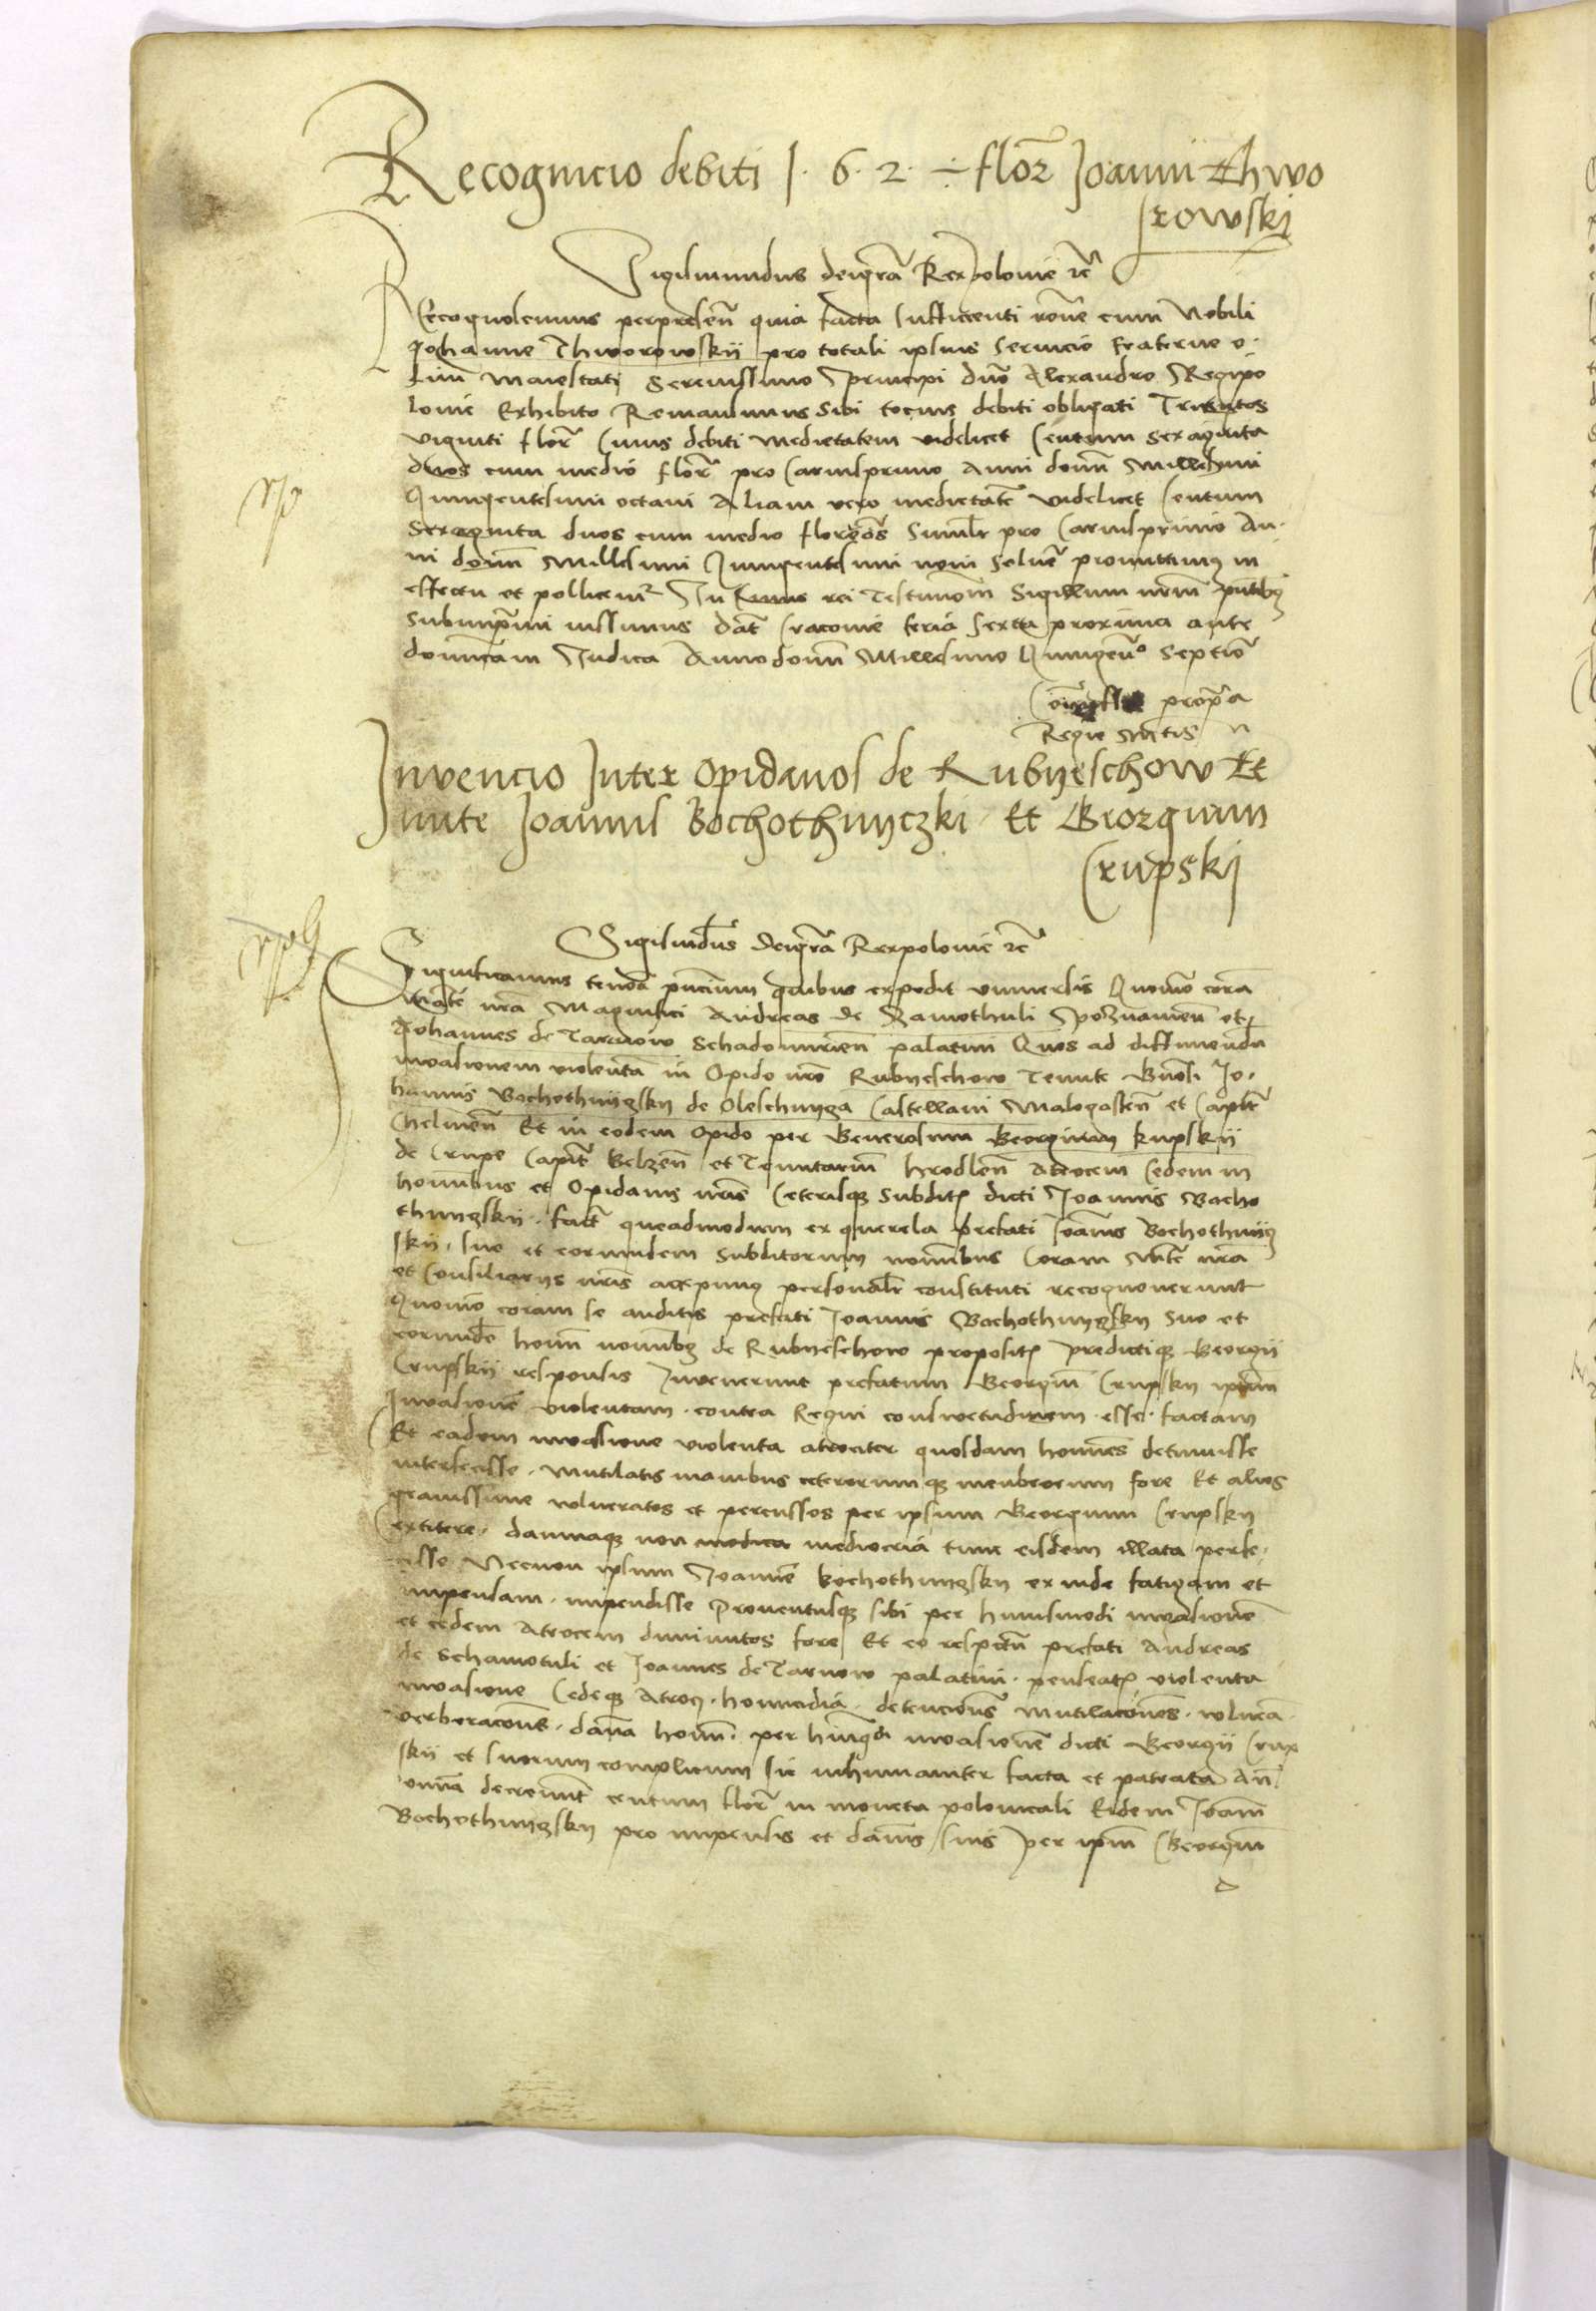 Recognicio debiti 1·6·2· ÷ florꝫ Joanni Thwo
rowskj
Sigismundus deigrã Rexpolonie rc̃
Recognoscimus perpresen̄ quia facta sufficienti rōne cum Nobili
Johanne Thworowskij pro totali ipsius Seruicio fraterne o-
lim̄ Maiestati Serenissimo principi dn̄o Alexandro Regipo
lonie Exhibito Remansimus sibi tocius debiti obligati Tricentos
viginti flor̄ Cuius debiti medietatem videlicet Centum Sexaginta
duos cum medio flor̄ pro Carnisprivio Anni domī Millesimi
Quingentesimi octavi Aliam vero medietatē videlicet Centum
Sexaginta duos cum medio florēos Simil̄r pro Carnisprivio An-
ni domī Millesimi Quingentesimi noni Soluē promittimus in
effectu et pollicemur In Cuius rei Testimoīm Sigillum nrm̄ pn̄tibꝫ
Subimprimi iussimus dat̄ Cracovie feria Sexta proxima ante
domīcam Judica Anno domī Millesimo Quingen̄o Septīo
propr̄a
Regie Mtis
Invencio Inter Opidanos de Rubyeschow Te
nute Joannis Bochothnyczki Et Georgium
Crupskj
Sigismūdus deigrã Rexpolonie rc̃
Significamus tenorē pn̄cium quibus expedit vniuersis Quomō corā
Mate nrā Magnifici Andreas de Schamothuli Poznanien̄ et
Johannes de Tarnow Schadomirien̄ palatini Quos ad diffiniendū
invasionem violentā in Opido nrō Rubyeschow Tenute Gn̄osi Jo-
hannis Bochothnyczky de Oleschnycza Castellani Malogosten̄ et Capit̄
Chelmen̄ Et in eodem opido per Generosum Georgium krupskij
de Crupe Capit̄ Belzen̄ et Tenutariū hrodlen̄ Atrocem Cedem in
hominibus et Opidanis nrīs Ceterisqꝫ Subditis dicti Joannis Bocho
thnyczkij· fact̄ queadmodum ex querela prefati Joānis Bochothnycz
skij· suo et eorundem Subditorum nominibus Coram Mte nrā
et Consiliarijs nrīs accepimꝫ personal̄r constituti recognouerunt
Quomō coram se auditis prefati Joannis Bochothnyczky suo et
eorundē homī nominibꝫ de Rubyeschow propositis predictiqꝫ Georgij
Crupskij responsis Invenerunt prefatum Georgiū Crupsky ipsum
Invasionē violentam· contra Regni consuetudinem· esse· factam
Et eadem invasione violenta atrociter quosdam homines detinuisse
interfecisse· Mutilatis manibus ceterorumqꝫ membrorum fore Et alios
gravissime vulneratos et percussos per ipsum Georgium Crupsky
extitere· damnaqꝫ non modica mediocria tunc eisdem illata perfe-
cisse Necnon ipsum Joannē Bochothnyczky exinde fatigam et
impensam· impendisse Proventusqꝫ sibi per huiusmodi invasionē
et cedem Atrocem diminutos fore Et eo respectu prefati Andreas
de Schamotuli et Joannes de Tarnow palatini· pensatis violenta
invasione Cedeqꝫ Atroci· homicidia· detenciones Mutilaciones· vulnera·
verberaciones· dāna homī· per hm̄odi invasionē dicti Georgij Crup
skij et suorum complicum sic inhumaniter facta et patrata An̄
omīa decreverunt centum flor̄ in moneta polonicali Eidem Joāni
Bochothnyczky pro impensis et damnis suis per ipm̄ Georgiū